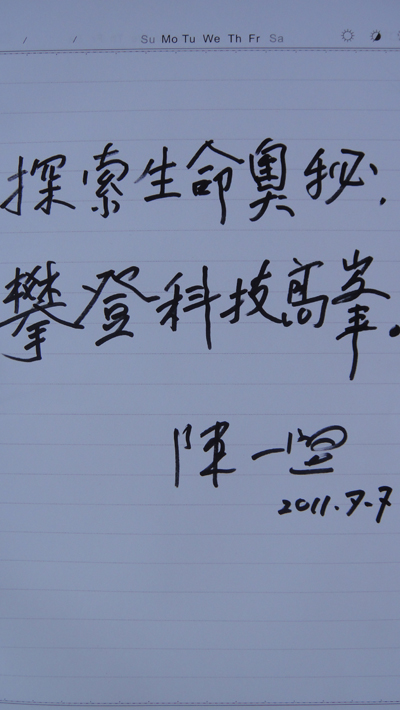 Su Mo Tu We Th Fr Sa
探索生命奧秘,
攀登科技高峯。
陳一
2011.7-7